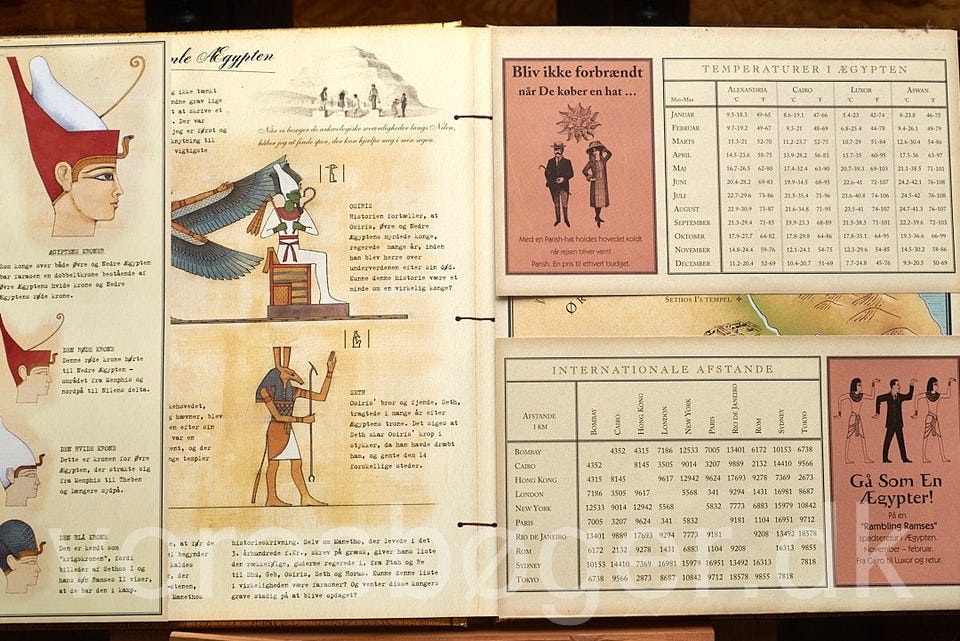 mle Ægypten
ÆGYPTENS KRONER
Som konge over både Øvre og Nedre Ægypten
bar faraoen en dobbeltkrone bestående af
Øvre Ægyptens hvide krone og Nedre
Ægyptens røde krone.
DEN RØDE KRONE
Denne røde krone hørte
til Nedre Ægypten –
området fra Memphis og
nordpå til Nilens delta.
DEN HVIDE KRONE
Dette er kronen for Øvre
Ægypten, der strakte sig
fra Memphis til Theben
og længere sydpå.
DEN BLÅ KRONE
Den er kendt som
"krigskronen", fordi
billeder af Sethos I og
hans søn Ramses II viser,
at de bar den i kamp.
g ikke tænkt
ndne grav lige
t at skrive et
Der var
jeg er først og
knytning til
vigtigste
Når vi besøger de arkæologiske seværdigheder langs Nilen,
håber jeg at finde spor, der kan hjælpe mig i min søgen.
OSIRIS
Historien fortæller, at
Osiris, Øvre og Nedre
Ægyptens myrdede konge,
regerede mange år, inden
han blev herre over
underverdenen efter sin død.
Kunne denne historie være et
minde om en virkelig konge?
SETH
Osiris' bror og fjende, Seth,
tragtede i mange år efter
Ægyptens trone. Det siges at
Seth skar Osiris' krop i
stykker, da han havde dræbt
ham, og gemte den 14
forskellige steder.
kehovedet,
g hævner, blev
en efter sin
var en
ent, og der
nge templer
e, at før de
l begynder
kaldes
der
otenen,
Manethos
historieskrivning. Selv om Manetho, der levede i det
3. århundrede f.Kr., skrev på græsk, giver hans liste
den rækkefølge, guderne regerede i, fra Ptah og Re
til Shu, Seb, Osiris, Seth og Horus. Kunne denne liste
i virkeligheden være faraoner? Og venter disse kongers
grave stadig på at blive opdaget?
Bliv ikke forbrændt
når De køber en hat ...
Med en Parish-hat holdes hovedet koldt
når rejsen bliver varm!
Parish: En pris til ethvert budget.
TEMPERATURER I ÆGYPTEN
ALEXANDRIA CAIRO LUXOR ASWAN
Min–Max °C °F °C °F °C °F °C °F
JANUAR 9.3-18.3 49-65 8.6-19.1 47-66 5.4-23 42-74 8-23.8 46-75
FEBRUAR 9.7-19.2 49-67 9.3-21 48-69 6.8-25.4 44-78 9.4-26.1 49-79
MARTS 11.3-21 52-70 11.2-23.7 52-75 10.7-29 51-84 12.6-30.4 54-86
APRIL 14.5-23.6 58-75 13.9-28.2 56-83 15.7-35 60-95 17.5-36 63-97
MAJ 16.7-26.5 62-80 17.4-32.4 63-90 20.7-39.3 69-103 21.1-38.5 71-101
JUNI 20.4-28.2 69-83 19.9-34.5 68-95 22.6-41 72-107 24.2-42.1 76-108
JULI 22.7-29.6 73-86 21.5-35.4 71-96 23.6-40.8 74-106 24.5-42 76-108
AUGUST 22.9-30.9 73-87 21.6-34.8 71-95 23.5-41 74-107 24.7-41.3 76-107
SEPTEMBER 21.3-29.4 71-85 19.9-23.3 68-89 21.5-38.5 71-101 22.2-39.6 72-103
OKTOBER 17.9-27.7 64-82 17.8-29.8 64-86 17.8-35.1 64-95 19.3-36.6 66-99
NOVEMBER 14.8-24.4 59-76 12.1-24.1 54-75 12.3-29.6 54-85 14.5-30.2 58-86
DECEMBER 11.2-20.4 52-69 10.4-20.7 51-69 7.7-24.8 45-76 9.9-20.5 50-69
SETHOS I'S TEMPEL
ØK
INTERNATIONALE AFSTANDE
AFSTANDE I KM BOMBAY CAIRO HONG KONG LONDON NEW YORK PARIS RIO DE JANEIRO ROM SYDNEY TOKYO
BOMBAY 4352 4315 7186 12533 7005 13401 6172 10153 6738
CAIRO 4352 8145 3505 9014 3207 9889 2132 14410 9566
HONG KONG 4315 8145 9617 12942 9624 17693 9278 7369 2673
LONDON 7186 3505 9617 5568 341 9294 1431 16981 8687
NEW YORK 12533 9014 12942 5568 5832 7773 6883 15979 10842
PARIS 7005 3207 9624 341 5832 9181 1104 16951 9712
RIO DE JANEIRO 13401 9889 17693 9294 7773 9181 9208 13492 18578
ROM 6172 2132 9278 1431 6883 1104 9208 16313 9855
SYDNEY 10153 14410 7369 16981 15979 16951 13492 16313 7818
TOKYO 6738 9566 2873 8687 10842 9712 18578 9855 7818
Gå Som En
Ægypter!
På en
"Rambling Ramses"
spadseretur i Ægypten.
November – februar.
Fra Cairo til Luxor og retur.